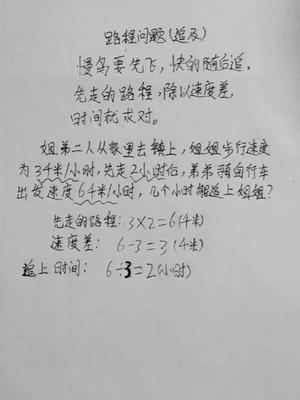 路程问题(追及)
慢鸟要先飞,快的随后追.
先走的路程,除以速度差,
时间就求对。
姐弟二人从家里去镇上,姐姐步行速度
为3千米/小时,先走2小时后,弟弟骑自行车
出发速度6千米/小时,几个小时能追上姐姐?
先走的路程:3×2=6(千米)
速度差: 6-3=3(千米)
追上时间: 6÷3=2(小时)